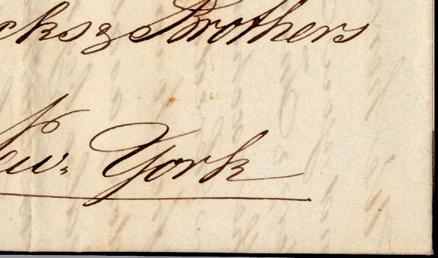 cks & Brothers
New York